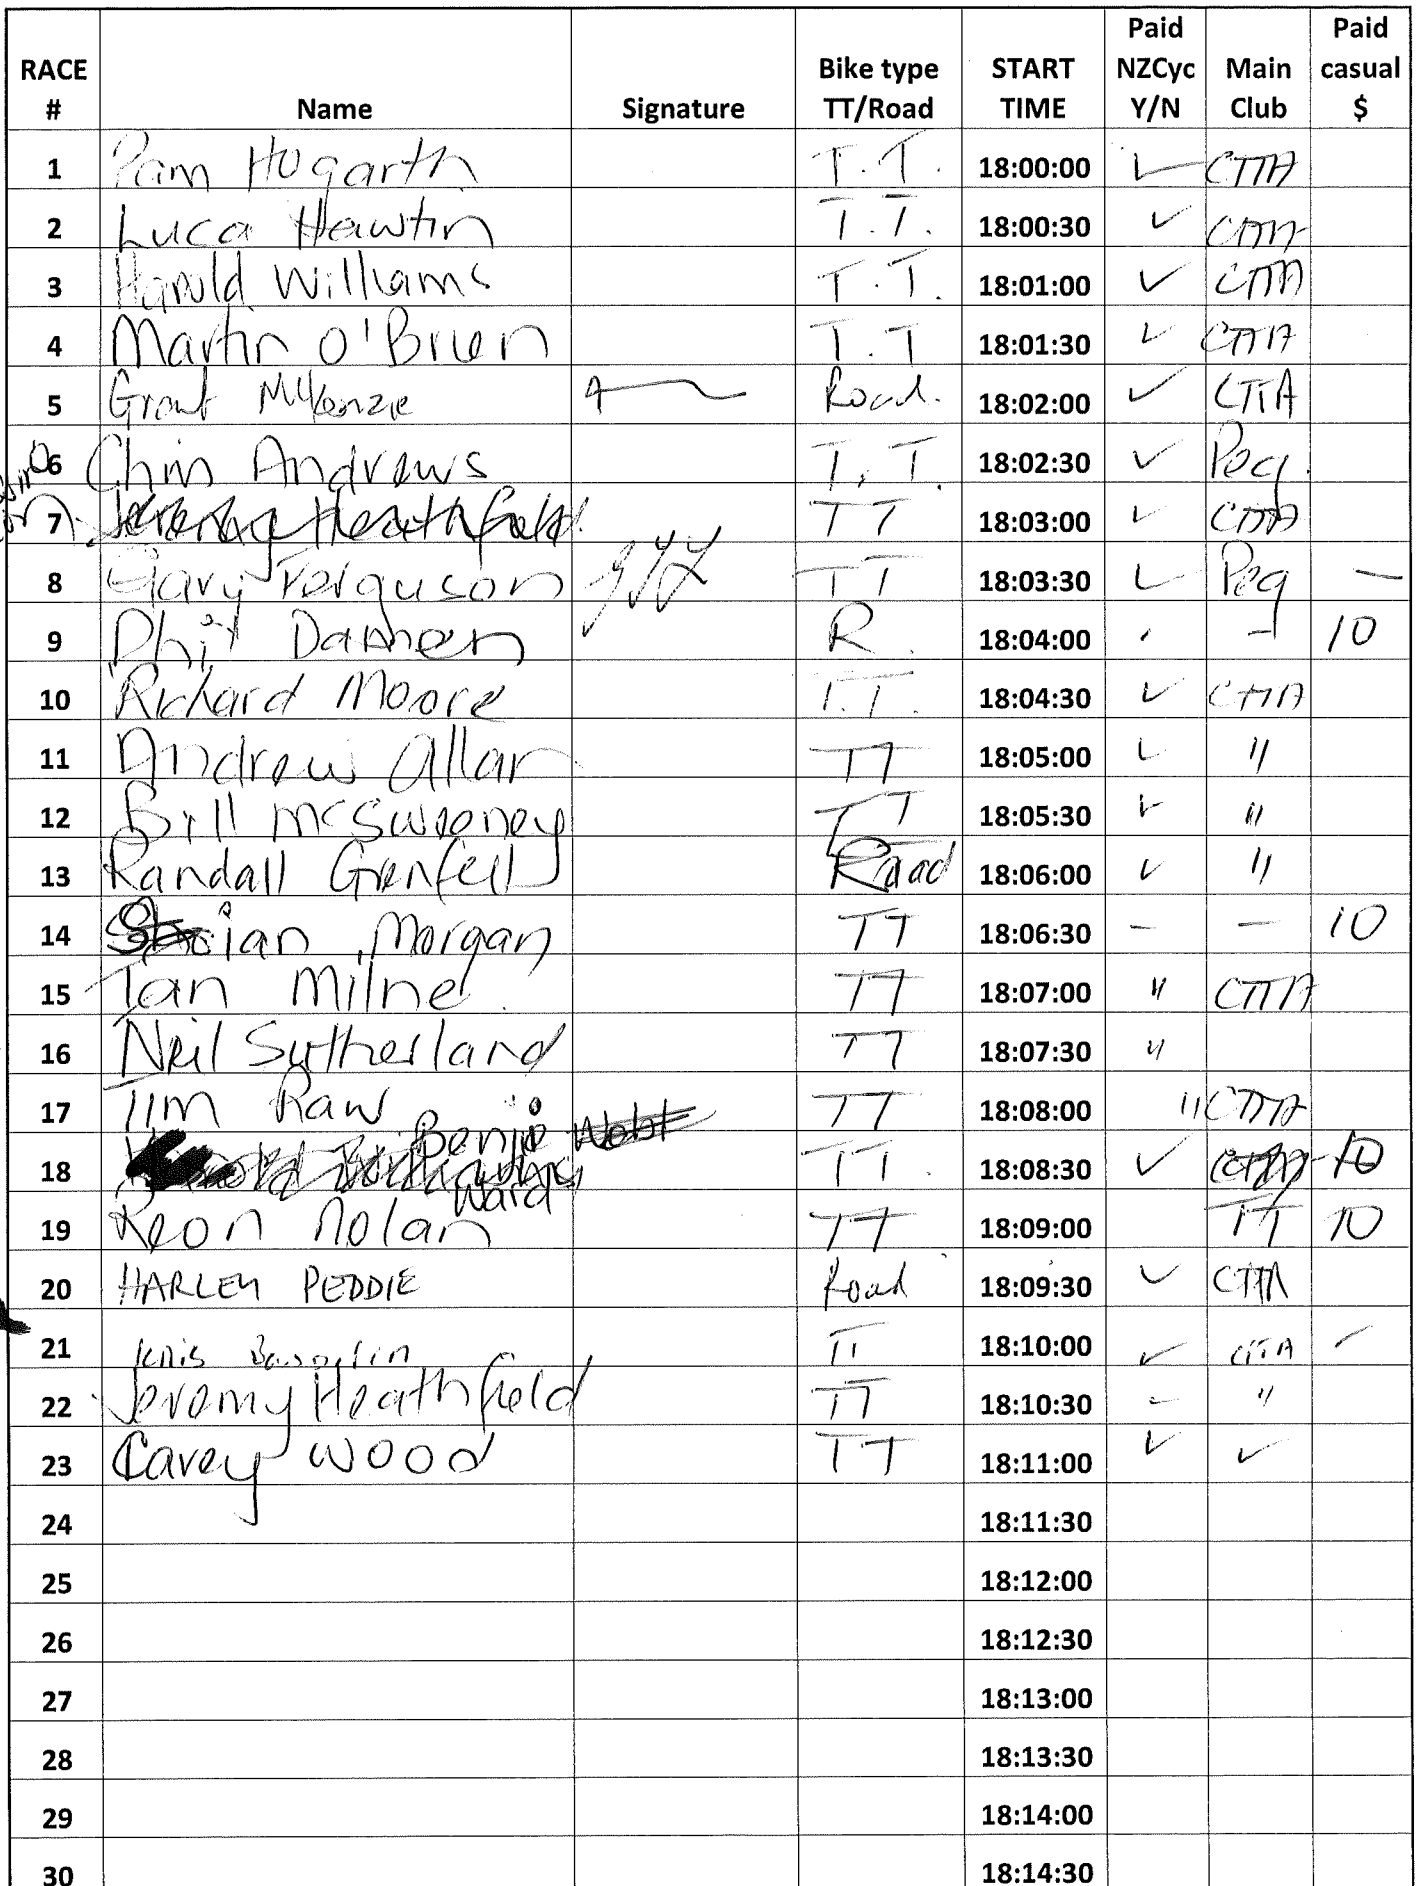 RACE # Name Signature Bike type TT/Road START TIME Paid NZCyc Y/N Main Club Paid casual $
1 Pam Hogarth T.T. 18:00:00 ✓ CTTA
2 Luca Hawtin T.T. 18:00:30 ✓ CTTA
3 Harold Williams T.T. 18:01:00 ✓ CTTA
4 Martin O'Brien T.T 18:01:30 ✓ CTTA
5 Grant McKenzie Road. 18:02:00 ✓ CTTA
6 Chris Andrews T.T. 18:02:30 ✓ Peg.
7 Jeremy Heathfield. TT 18:03:00 ✓ CTTA
8 Gary Ferguson TT 18:03:30 ✓ Peg —
9 Phil Damen R. 18:04:00 - 10
10 Richard Moore T.T. 18:04:30 ✓ CTTA
11 Andrew Allan TT 18:05:00 ✓ "
12 Bill McSweeney TT 18:05:30 ✓ "
13 Randall Grenfell Road 18:06:00 ✓ "
14 ian Morgan TT 18:06:30 — — 10
15 Ian Milne TT 18:07:00 " CTTA
16 Neil Sutherland TT 18:07:30 "
17 Tim Raw TT 18:08:00 " CTTA
18 Benji Webt Ward TT. 18:08:30 ✓ CTTA 10
19 Keon Nolan TT 18:09:00 TT 10
20 HARLEY PEDDIE Road 18:09:30 ✓ CTTA
21 Kris TT 18:10:00 ✓ CTTA
22 Jeremy Heathfield TT 18:10:30 - "
23 Carey Wood TT 18:11:00 ✓ ✓
24 18:11:30
25 18:12:00
26 18:12:30
27 18:13:00
28 18:13:30
29 18:14:00
30 18:14:30